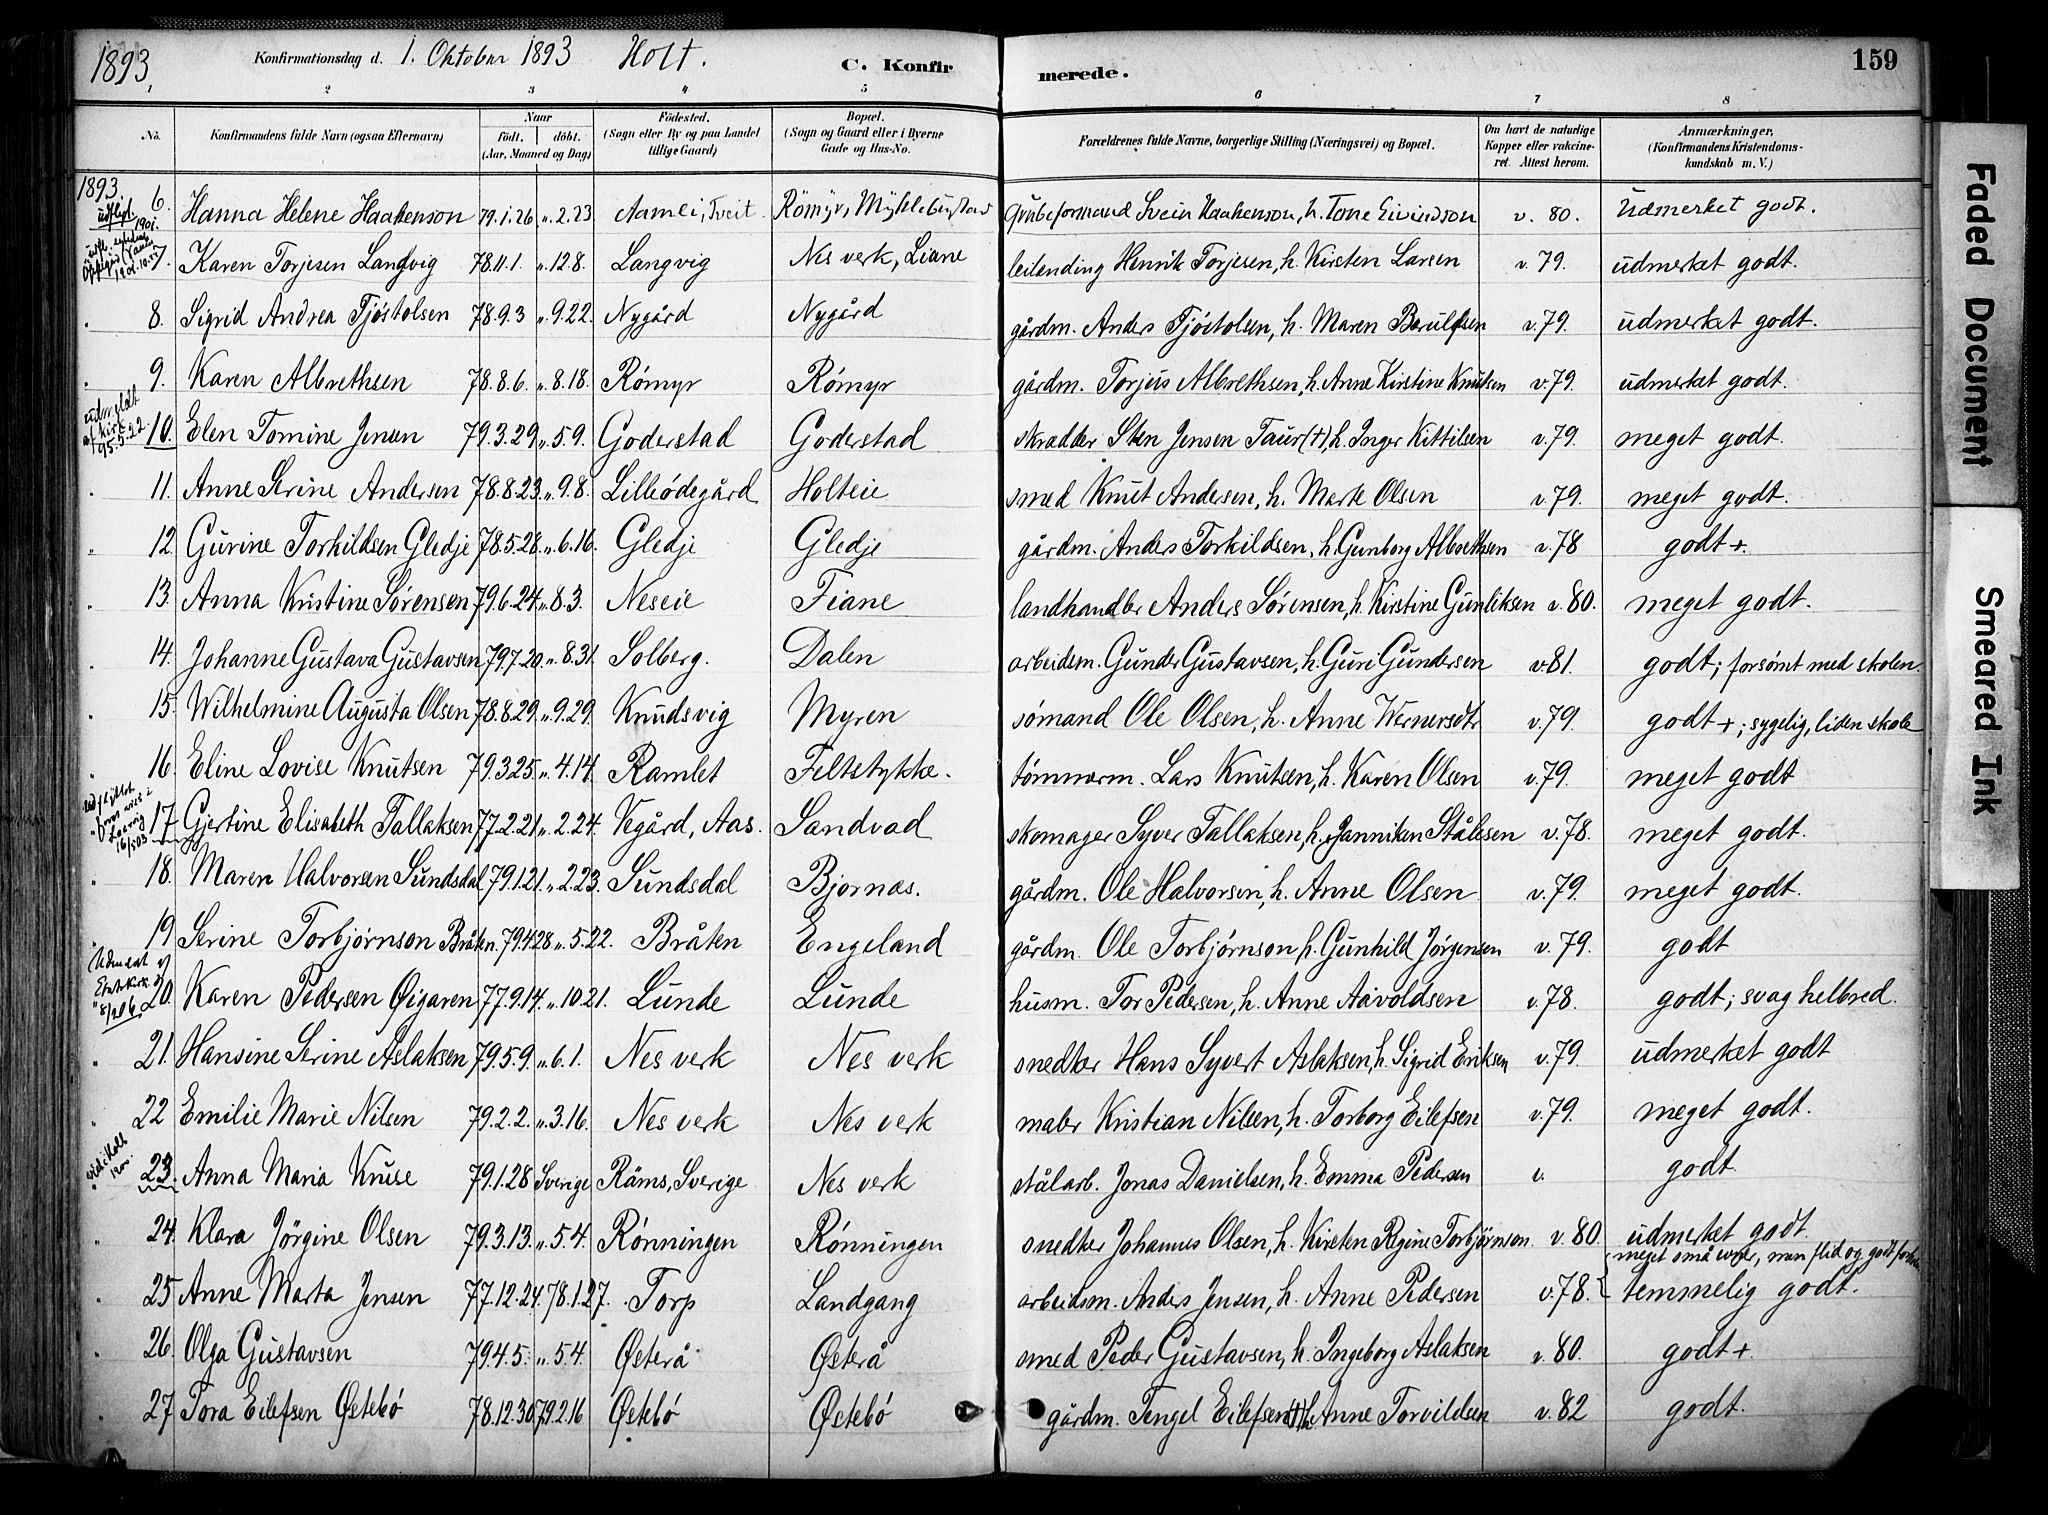 1893 Konfirmationsdag d. 1. Oktober 1893 Holt. C. Konfirmerede. 159
1 2 3 4 5 6 7 8
No. Konfirmandens fulde Navn (ogsaa Efternavn) Naar født. døbt. (Aar, Maaned og Dag) Fødested. (Sogn eller By og paa Landet tillige Gaard) Bopæl. (Sogn og Gaard eller i Byerne Gade og Hus-No. Forældrenes fulde Navne, borgerlige Stilling (Næringsvei) og Bopæl. Om havt de naturlige Kopper eller vakcineret. Attest herom. Anmærkninger. (Konfirmandens Kristendomskundskab m. V.)
1893.
udflyt 1901. 6. Hanna Helene Haakenson 79.1.26 ". 2.23 Aamli, Tveit. Rømyr, Myklebustad grubeformand Svein Haakenson, h. Tone Eivindson v. 80. Udmerket godt.
7. Karen Torjesen Langvig 78.11.1. ". 12.8. Langvig Nes verk, Liane leilending Henrik Torjesen, h. Kirsten Larsen v. 79. udmerket godt.
" 8. Sigrid Andrea Tjøstolsen 78.9.3 ". 9.22. Nygård Nygård gårdm. Anders Tjøstolsen, h. Maren Berulfsen v. 79. udmerket godt.
" 9. Karen Albrethsen 78.8.6. ". 8.18. Rómyr Rómyr gårdm. Torjus Albrethsen, h. Anne Kirstine Knutsen v. 79. udmerket godt.
udmeldt af kirk. 95.5.22. 10. Elen Tomine Jensen 79.3.29 ". 5.9. Goderstad Goderstad skrædder Sten Jensen Taur (†), h. Inger Kittilsen v. 79. meget godt.
" 11. Anne Serine Andersen 78.8.23 ". 9.8. Lilleødegård Holteie smed Knut Andersen, h. Marte Olsen v. 79. meget godt.
" 12. Gurine Torkildsen Gledje 78.5.28 ". 6.16. Gledje Gledje gårdm. Anders Torkildsen, h. Gunborg Albrethsen v. 78 godt +.
" 13. Anna Kristine Sørensen 79.6.24 ". 8.3. Neseie Fiane landhandler Anders Sørensen, h. Kirstine Gunliksen v. 80. meget godt.
" 14. Johanne Gustava Gustavsen 79.7.20 ". 8.31. Solberg. Dalen arbeidsm. Gunder Gustavsen, h. Guri Gundersen v. 81. godt; forsømt med skolen.
" 15. Wilhelmine Augusta Olsen 78.8.29 ". 9.29. Knudsvig Myren sømand Ole Olsen, h. Anne Wernersdtr v. 79. godt +; sygelig, liden skole
" 16. Eline Lovise Knutsen 79.3.25. ". 4.14. Ramlet Feltetykke. tømmerm. Lars Knutsen, h. Karen Olsen v. 79. meget godt
17. Gjertine Elisabeth Tallaksen 77.2.21 ". 2.24. Vegård, Aas. Sandvad skomager Syver Tallaksen, h. Janniken Stålesen v. 78. meget godt.
" 18. Maren Halvorsen Sundsdal 79.1.21 ". 2.23. Sundsdal Bjornas. gårdm. Ole Halvorsen, h. Anne Olsen v. 79. meget godt.
" 19 Serine Torbjørnson Bråten. 79.4.28 ". 5.22. Bråten Engeland gårdm. Ole Torbjørnson h. Gunhild Jørgensen v. 79. godt
20. Karen Pedersen Øigaren 77.9.14. ". 10.21. Lunde Lunde husm. Tor Pedersen, h. Anne Aavoldsen v. 78. godt; svag helbred.
" 21. Hansine Serine Aslaksen 79.5.9. ". 6.1. Nes verk Nes verk snedker Hans Syvert Aslaksen, h. Sigrid Eriksen v. 79. udmerket godt
" 22 Emilie Marie Nilsen 79.2.2. ". 3.16. Nes verk Nes verk maler Kristian Nilsen, h. Torborg Eilefsen v. 79. meget godt.
23. Anna Maria Kruse 79.1.28 Sverige Räms, Sverige Nes verk stålarb. Jonas Danielsen, h. Emma Pedersen v. godt
" 24. Klara Jörgine Olsen 79.3.13. ". 5.4. Rønningen Rønningen snedker Johannes Olsen, h. Kirsten Regine Torbjörnson v. 80. udmerket godt.
" 25 Anne Marta Jensen 77.12.24 78.1.27. Torp Landgang arbeidsm. Anders Jensen, h. Anne Pedersen v. 78. { meget små evner, men flid og godt forhold temmelig godt.
" 26. Olga Gustavsen 79.4.5. ". 5.4. Østerå Østerå smed Peder Gustavsen, h. Ingeborg Aslaksen v. 80. godt +
" 27 Tora Eilefsen Østebó 78.12.30 79.2.16 Østebó Østebó gårdm. Tengel Eilefsen (†) h. Anne Torvildsen v. 82 godt.
Faded Document
Smeared Ink